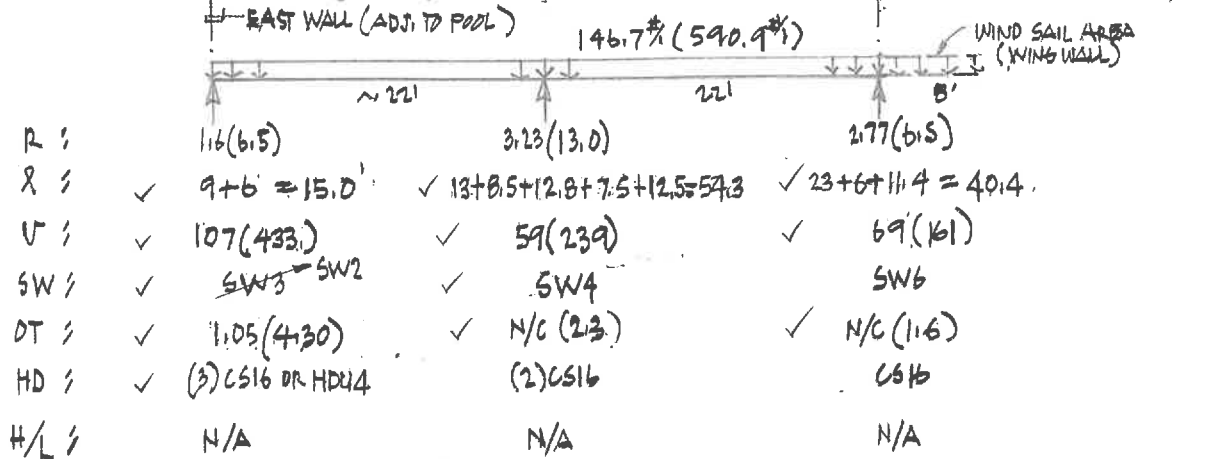 EAST WALL (ADJ. TO POOL)
146.7#/' (590.9#/')
WIND SAIL AREA
(WING WALL)
~22' 22' 8'
R: 1.6(6.5) 3.23(13.0) 2.77(6.5)
l: ✓ 9+6 = 15.0' ✓ 13+8.5+12.8+7.5+12.5=54.3 ✓ 23+6+11.4 = 40.4.
V: ✓ 107(433) ✓ 59(239) ✓ 69(161)
SW: ✓ SW3 SW2 ✓ SW4 SW6
OT: ✓ 1.05(4.30) ✓ N/C (2.3) ✓ N/C (1.6)
HD: ✓ (3)CS16 OR HDU4 (2)CS16 CS16
H/L: N/A N/A N/A